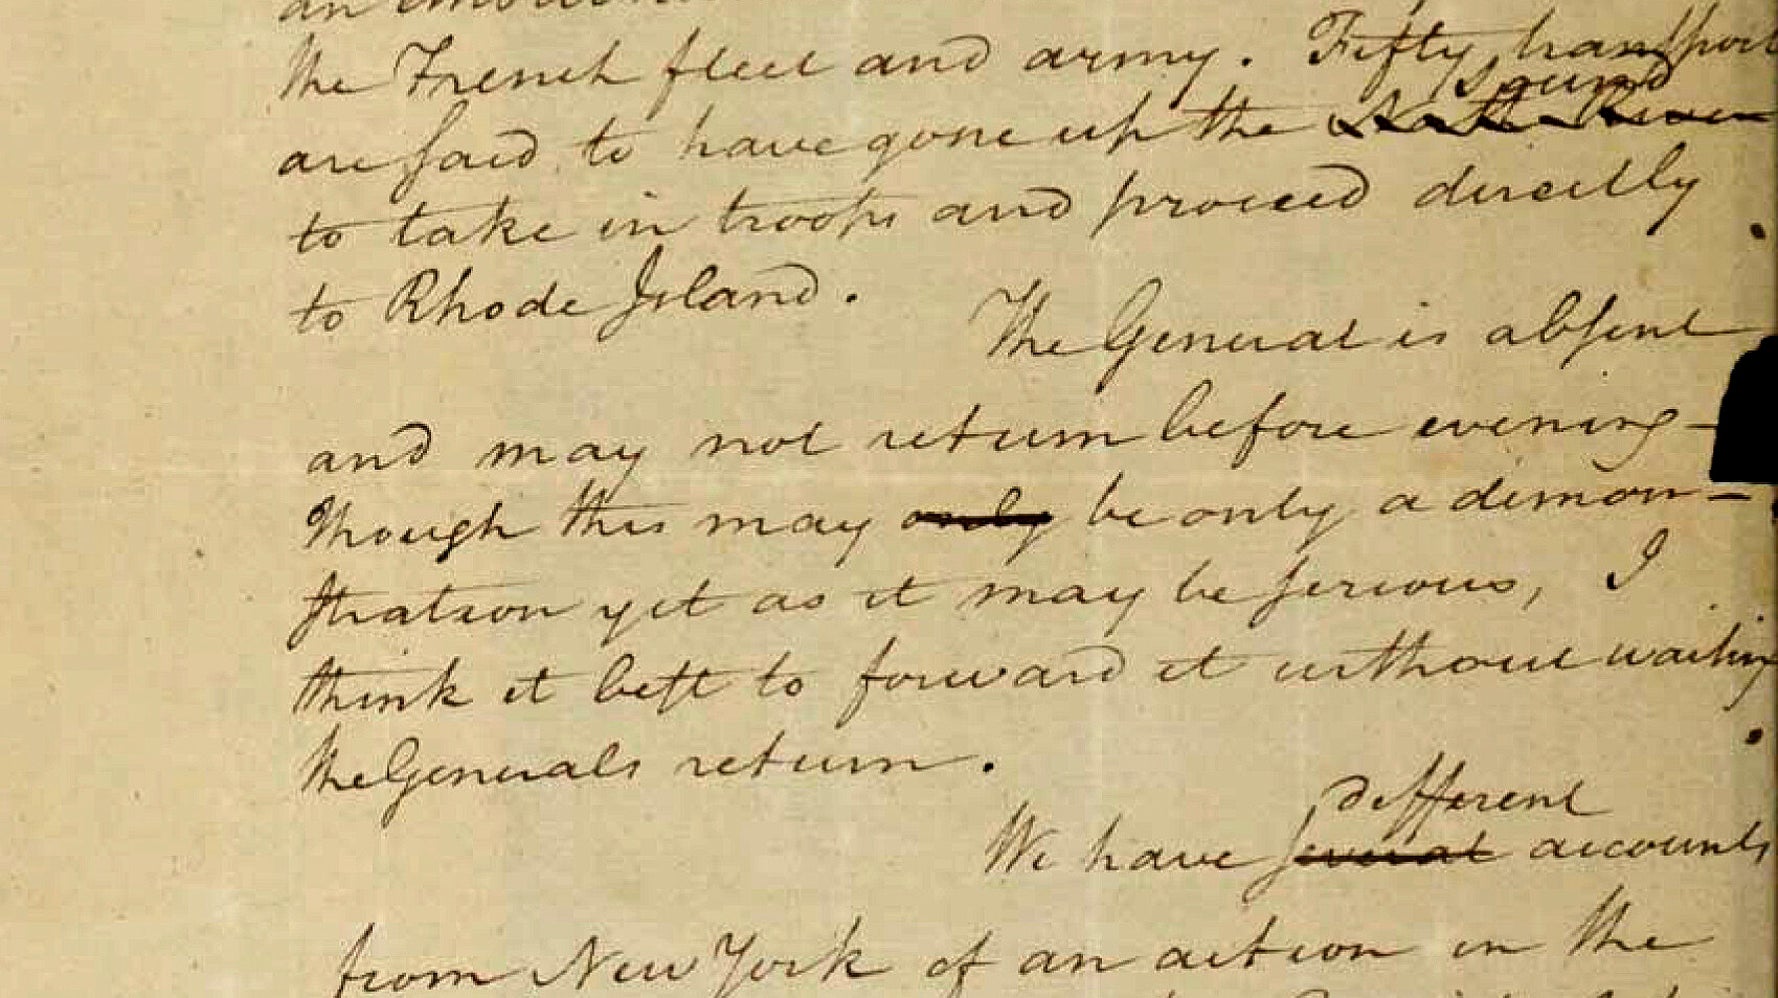 the French fleet and army. Fifty transport
Sound
are said to have gone up the North River
to take in troops and proceed directly
to Rhode Island.
The General is absent
and may not return before evening -
though this may only be only a demon-
stration yet as it may be serious, I
think it best to forward it without waiting
the Generals return.
different
We have several accounts
from New York of an action in the